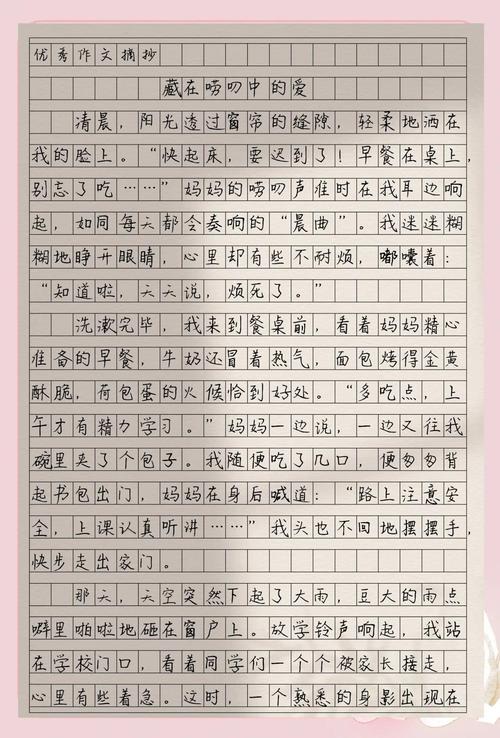 优秀作文摘抄
藏在唠叨中的爱
清晨，阳光透过窗帘的缝隙，轻柔地洒在
我的脸上。“快起床，要迟到了！早餐在桌上，
别忘了吃……”妈妈的唠叨声准时在我耳边响
起，如同每天都会奏响的“晨曲”。我迷迷糊
糊地睁开眼睛，心里却有些不耐烦，嘟囔着：
“知道啦，天天说，烦死了。”
洗漱完毕，我来到餐桌前，看着妈妈精心
准备的早餐，牛奶还冒着热气，面包烤得金黄
酥脆，荷包蛋的火候恰到好处。“多吃点，上
午才有精力学习。”妈妈一边说，一边又往我
碗里夹了个包子。我随便吃了几口，便匆匆背
起书包出门，妈妈在身后喊道：“路上注意安
全，上课认真听讲……”我头也不回地摆摆手，
快步走出家门。
那天，天空突然下起了大雨，豆大的雨点
噼里啪啦地砸在窗户上。放学铃声响起，我站
在学校门口，看着同学们一个个被家长接走，
心里有些着急。这时，一个熟悉的身影出现在